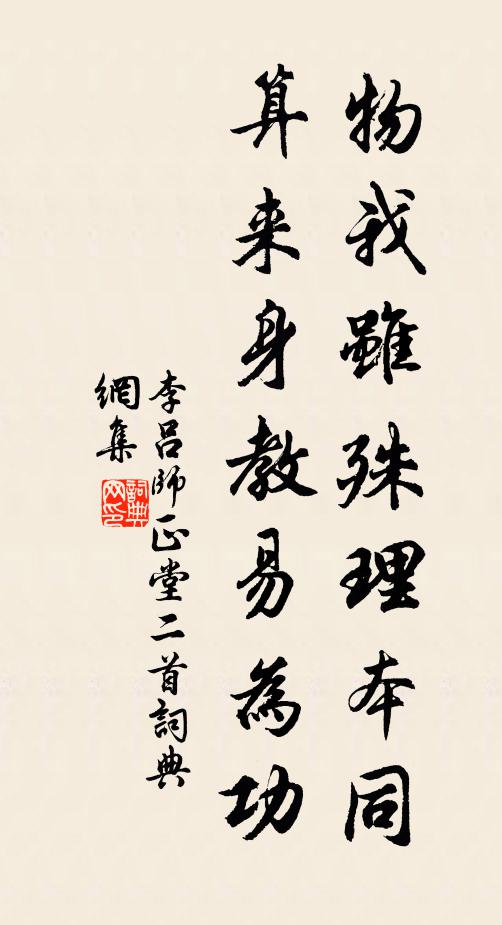 物我雖殊理本同
算来身教易為功
李呂師正堂二首詞典
網集
詞典
网印